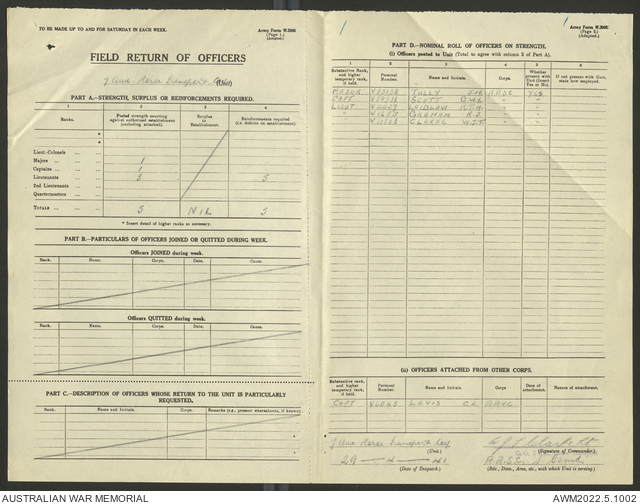 TO BE MADE UP TO AND FOR SATURDAY IN EACH WEEK.
Army Form W.3008
(Page 1.)
(Adapted.)
FIELD RETURN OF OFFICERS
7 Aux. Horse Transport Coy
PART A.—STRENGTH, SURPLUS OR REINFORCEMENTS REQUIRED.
1 2 3 4
Ranks. Posted strength counting against authorized establishment (excluding attached). Surplus to Establishment. Reinforcements required (i.e. deficits on establishment).
Lieut.-Colonels
Majors 1
Captains 1
Lieutenants 3 5
2nd Lieutenants
Quartermasters
TOTALS 5 NIL 5
* Insert detail of higher ranks as necessary.
PART B.—PARTICULARS OF OFFICERS JOINED OR QUITTED DURING WEEK.
Officers JOINED during week.
Rank. Name. Corps. Date. Cause.
Officers QUITTED during week.
Rank. Name. Corps. Date. Cause.
PART C.—DESCRIPTION OF OFFICERS WHOSE RETURN TO THE UNIT IS PARTICULARLY REQUESTED.
Rank. Name and Initials. Corps. Remarks (e.g., present whereabouts, if known).
1
Army Form W.3008
(Page 2.)
(Adapted.)
PART D.—NOMINAL ROLL OF OFFICERS ON STRENGTH.
(i) Officers posted to Unit (Total to agree with column 2 of Part A).
1 2 3 4 5 6
Substantive Rank, and higher temporary rank, if held. Personal Number. Name and Initials. Corps. Whether present with Unit (Insert Yes or No). If not present with Unit, state how employed.
MAJOR TULLY J.M. AASC YES
CAPT SCOTT
LIEUT LAIDLAW
" GRAHAM R.J. " "
" W.J.T. " "
(ii) OFFICERS ATTACHED FROM OTHER CORPS.
Substantive rank, and higher temporary rank, if held. Personal Number. Name and Initials. Corps Date of attachment. Nature of attachment.
CAPT LEWIS
7 Aux Horse Transport Coy
(Unit.)
(Signature of Commander.)
29 - 4 - 41
(Date of Despatch.)
(Bde., Dson., Area, etc., with which Unit is serving.)
AUSTRALIAN WAR MEMORIAL
AWM2022.5.1002